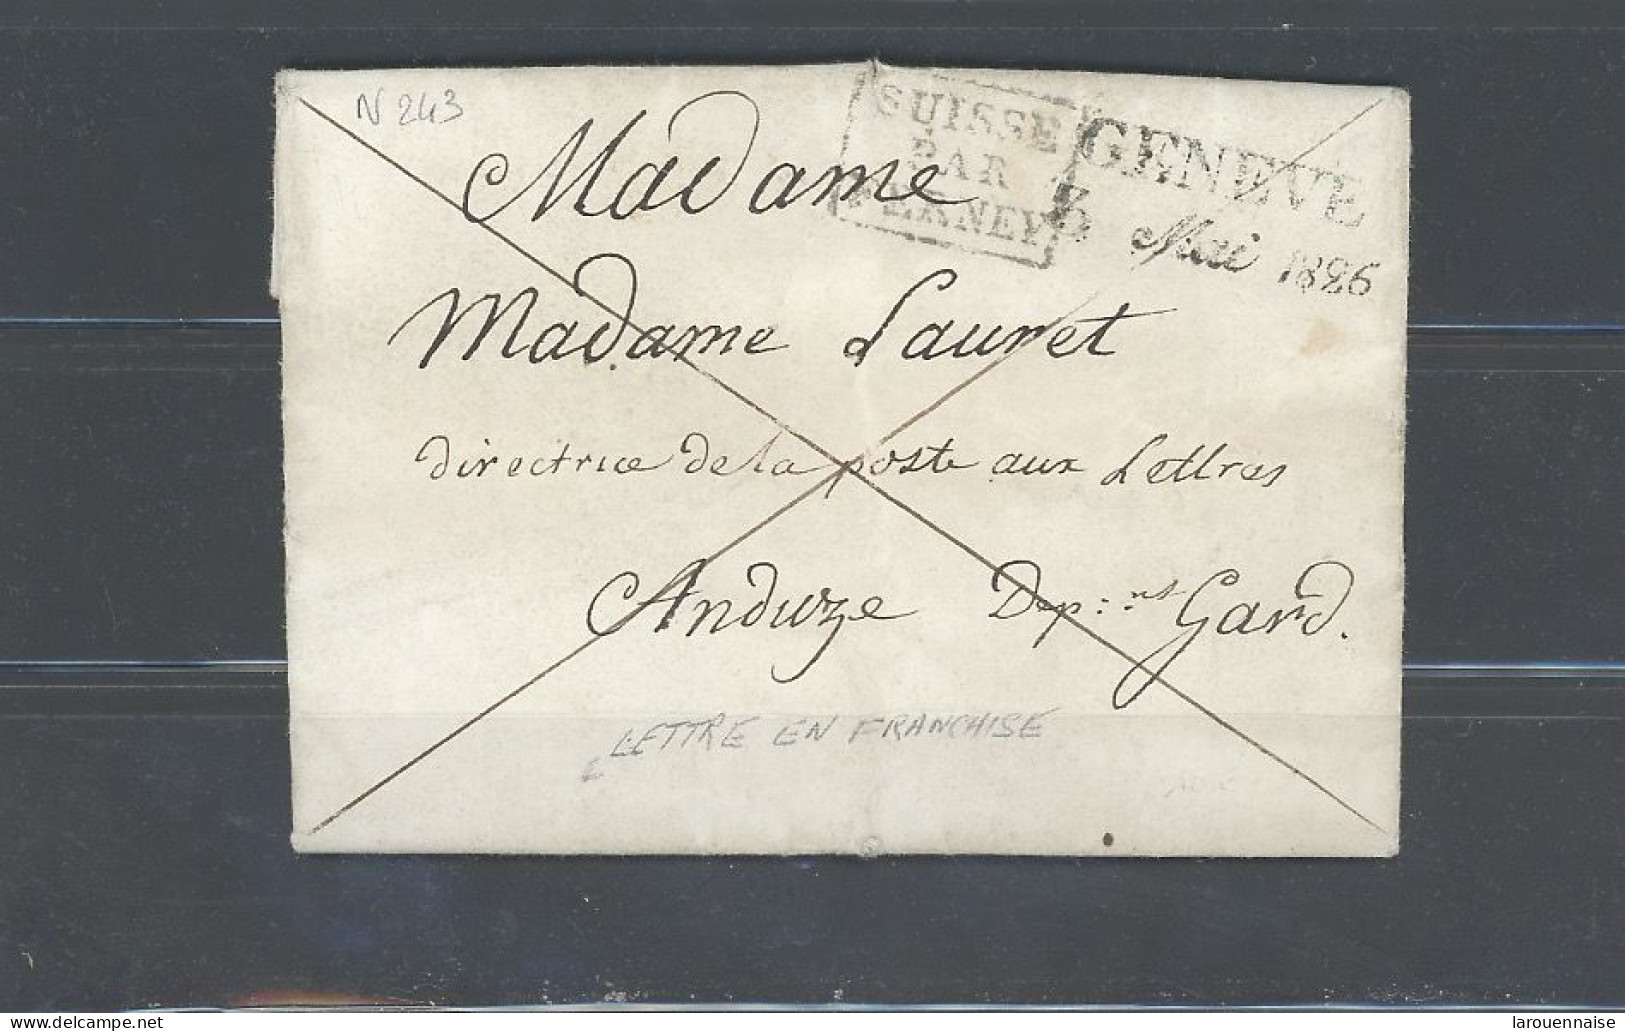 N 243
SUISSE
PAR
FERNEY
GENEVE
Mai 1826
Madame
Madame Lauret
directrice de la poste aux Lettres
Anduze Dep:ns Gard.
LETTRE EN FRANCHISE
www.delcampe.net
larouennaise